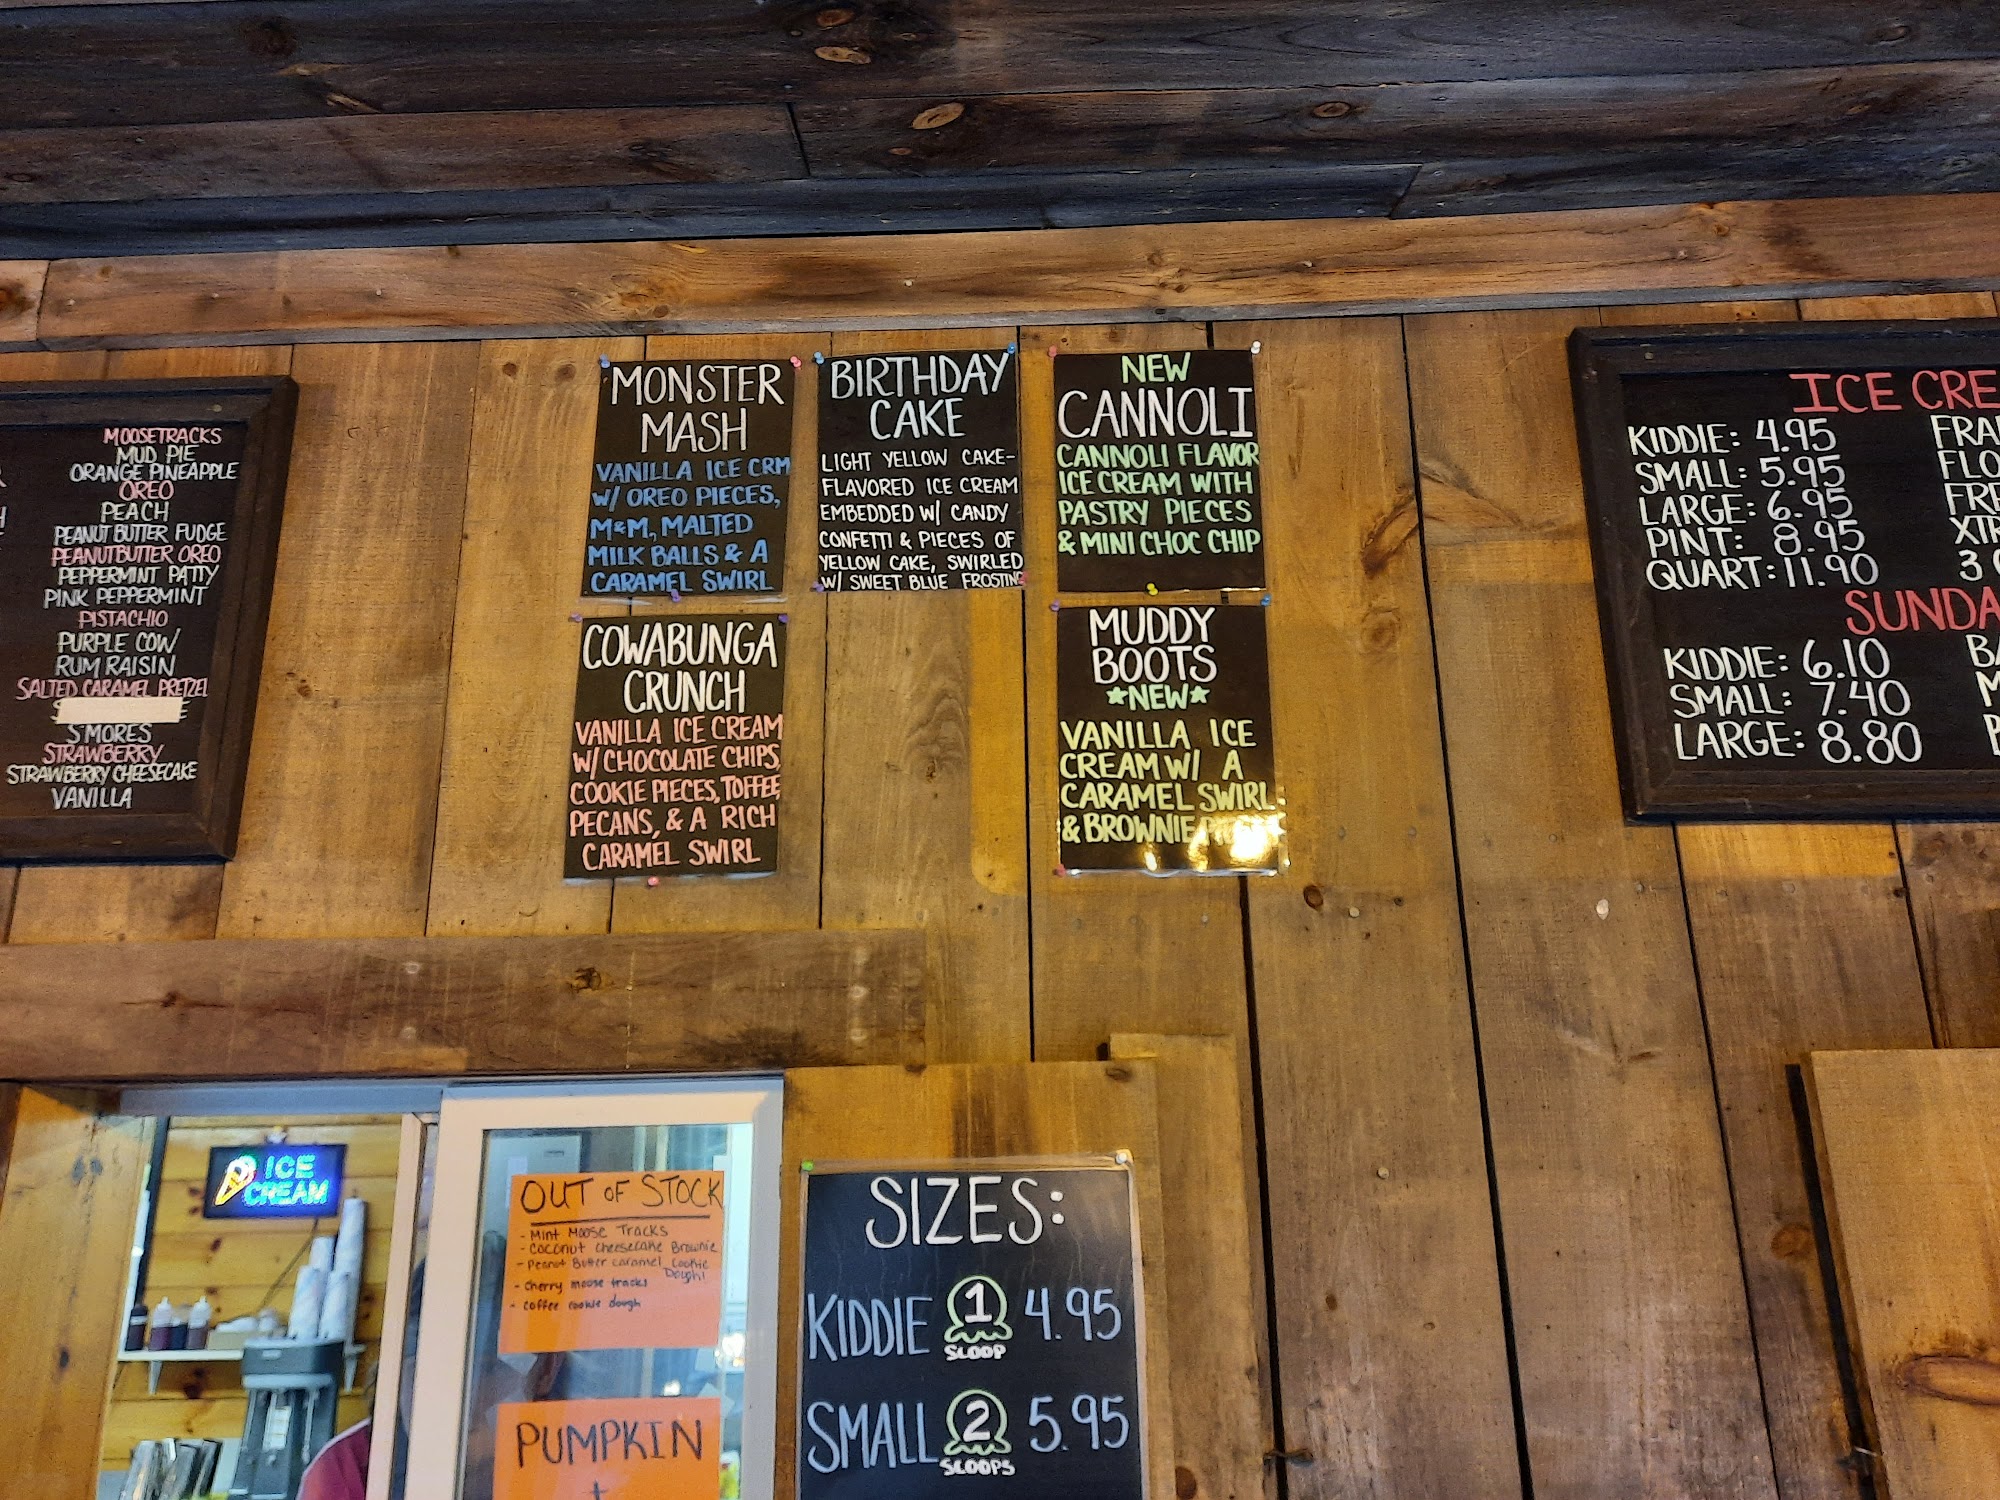 MOOSETRACKS
MUD PIE
ORANGE PINEAPPLE
OREO
PEACH
PEANUT BUTTER FUDGE
PEANUTBUTTER OREO
PEPPERMINT PATTY
PINK PEPPERMINT
PISTACHIO
PURPLE COW
RUM RAISIN
SALTED CARAMEL PRETZEL
S'MORES
STRAWBERRY
STRAWBERRY CHEESECAKE
VANILLA
MONSTER
MASH
VANILLA ICE CRM
W/ OREO PIECES,
M&M, MALTED
MILK BALLS & A
CARAMEL SWIRL
BIRTHDAY
CAKE
LIGHT YELLOW CAKE-
FLAVORED ICE CREAM
EMBEDDED W/ CANDY
CONFETTI & PIECES OF
YELLOW CAKE, SWIRLED
W/ SWEET BLUE FROSTING
NEW
CANNOLI
CANNOLI FLAVOR
ICE CREAM WITH
PASTRY PIECES
& MINI CHOC CHIP
COWABUNGA
CRUNCH
VANILLA ICE CREAM
W/ CHOCOLATE CHIPS,
COOKIE PIECES, TOFFEE,
PECANS, & A RICH
CARAMEL SWIRL
MUDDY
BOOTS
*NEW*
VANILLA ICE
CREAM W/ A
CARAMEL SWIRL
& BROWNIE
ICE CRE
KIDDIE: 4.95
SMALL: 5.95
LARGE: 6.95
PINT: 8.95
QUART: 11.90
FRA
FLO
FRE
XTR
3
SUNDA
KIDDIE: 6.10
SMALL: 7.40
LARGE: 8.80
BA
M
ICE
CREAM
OUT OF STOCK
- Mint Moose Tracks
- Coconut Cheesecake Brownie
- Peanut Butter Caramel Cookie
Dough!
- Cherry moose tracks
- coffee cookie dough
PUMPKIN
+
SIZES:
KIDDIE 1 4.95
SCOOP
SMALL 2 5.95
SCOOPS